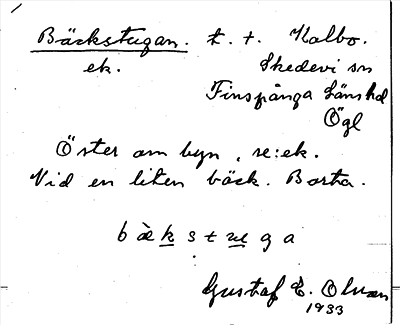 Bäckstugan. t. t. Kalbo.
ek. Skedevi sn
Finspånga länshd
Ögl
Öster om byn, se: ek.
Vid en liten bäck. Borta.
b ä̀ k s t u g a
Gustaf E. Olsson
1933